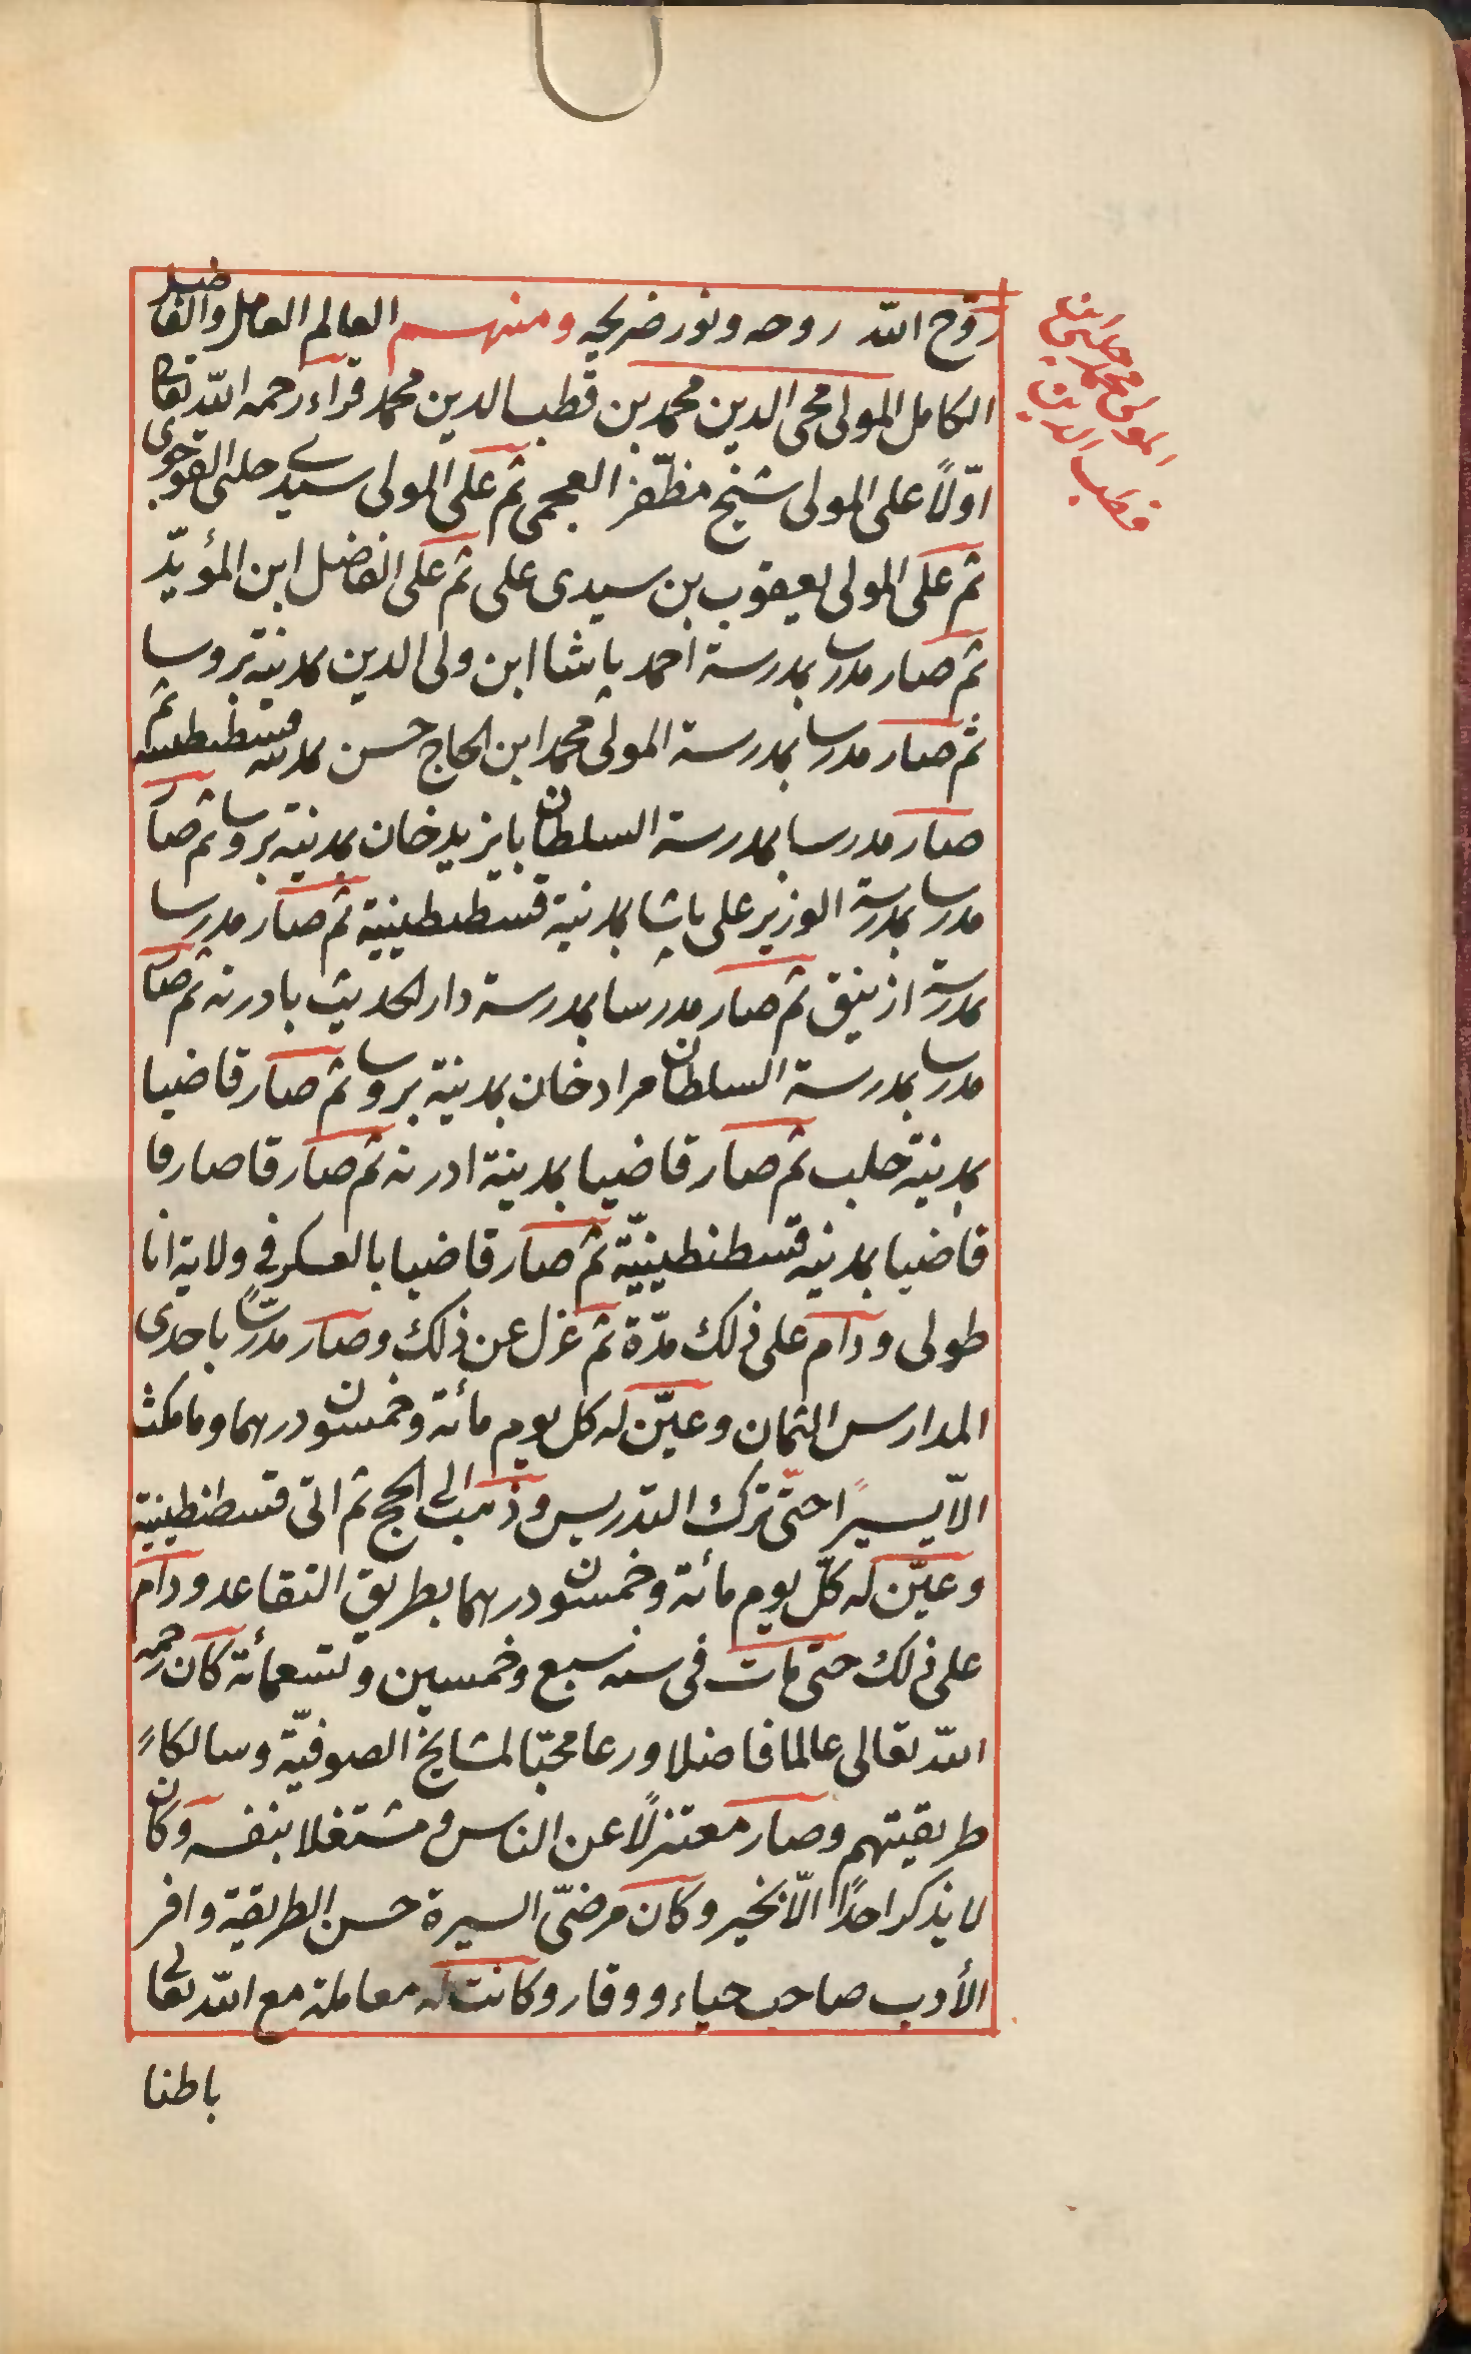 روّح الله روحه ونور ضريحه ومنهم العالم العامل والفاضل
الكامل المولى محى الدين محمد بن قطب الدين محمد قراء رحمه الله تعالى
اوّلاً على المولى شيخ مظفّر العجمى ثم على المولى سيدى چلبى القوجوى
ثم على المولى يعقوب بن سيدى على ثم على الفاضل ابن المؤيّد
ثم صار مدرسا بمدرسة احمد پاشا ابن ولى الدين بمدينة بروسا
ثم صار مدرسا بمدرسة المولى محمد ابن الحاج حسن بمدينة قسطنطينية ثم
صار مدرسا بمدرسة السلطان بايزيد خان بمدينة بروسا ثم صار
مدرسا بمدرسة الوزير على پاشا بمدينة قسطنطينية ثم صار مدرسا
بمدرسة ازنيق ثم صار مدرسا بمدرسة دار الحديث بادرنه ثم صار
مدرسا بمدرسة السلطان مراد خان بمدينة بروسا ثم صار قاضيا
بمدينة حلب ثم صار قاضيا بمدينة ادرنه ثم صار قا صار قا
قاضيا بمدينه قسطنطينيّة ثم صار قاضيا بالعسكر فى ولاية انا
طولى ودام على ذلك مدّة ثم عزل عن ذلك وصار مدرّسًا باحدى
المدارس الثمان وعيّن له كل يوم مائة وخمسون درهما وما مكث
الاّ يسيرًا حتّى ترك التدريس وذهب الى الحج ثم اتى قسطنطينية
وعيّن له كلّ يوم مائة وخمسون درهما بطريق التقاعد ودام
على ذلك حتى مات فى سنه سبع وخمسين وتسعمائة كان رحمه
الله تعالى عالما فاضلا ورعا محبّا لمشايخ الصوفيّة وسالكاً
طريقيتهم وصار معتزلاً عن الناس ومشتغلا بنفسه وكان
لا يذكر احدًا الاّ بخير وكان مرضىّ السيرة حسن الطريقة وافر
الأدب صاحب حياء ووقار وكانت له معاملة مع الله تعالى
باطنا
المولى محمد چلبى ابن
قطب الدين